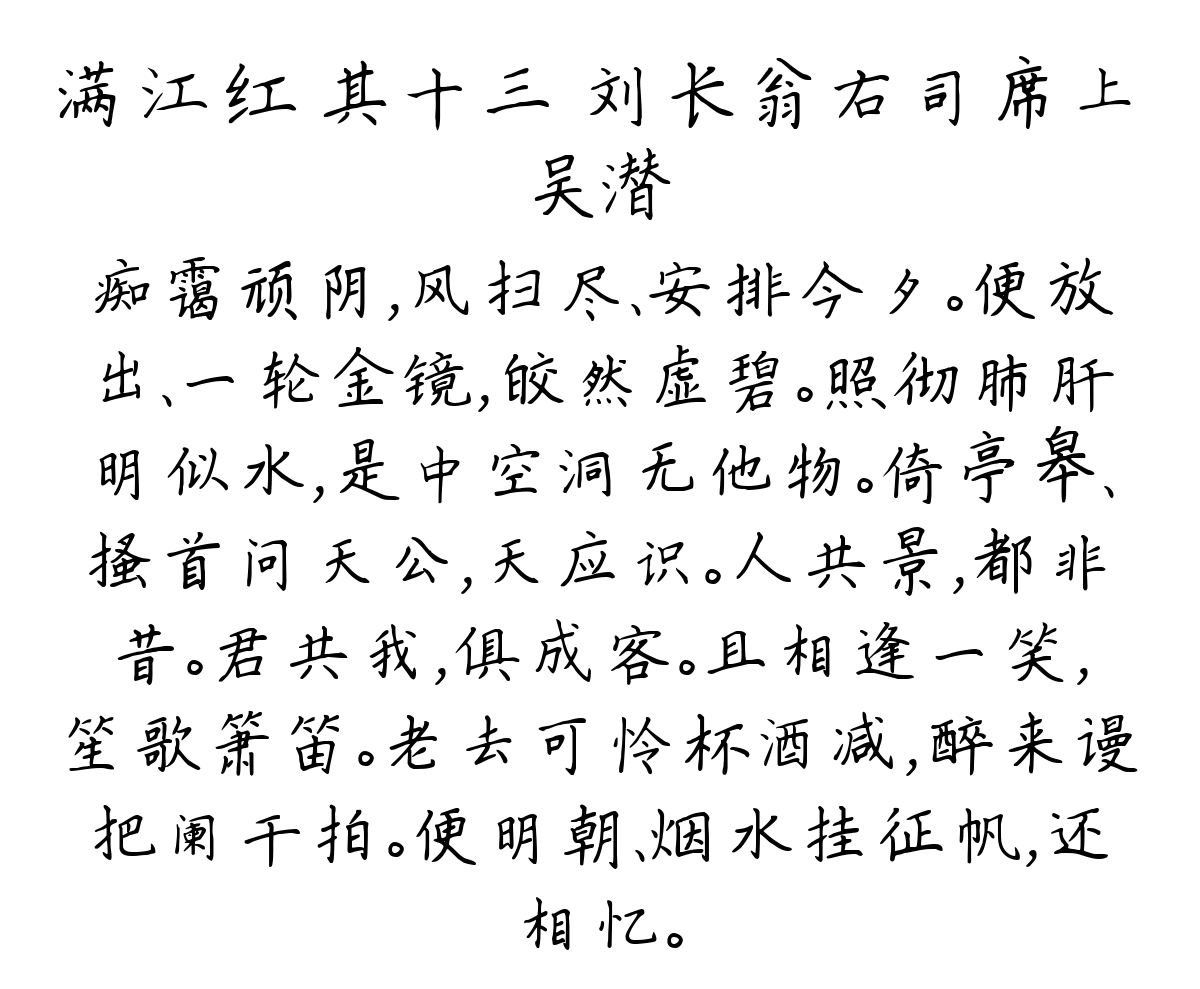 满江红 其十三 刘长翁右司席上
吴潜
痴霭顽阴,风扫尽、安排今夕。便放
出、一轮金镜,皎然虚碧。照彻肺肝
明似水,是中空洞无他物。倚亭皋、
搔首问天公,天应识。人共景,都非
昔。君共我,俱成客。且相逢一笑,
笙歌箫笛。老去可怜杯酒减,醉来谩
把阑干拍。便明朝、烟水挂征帆,还
相忆。